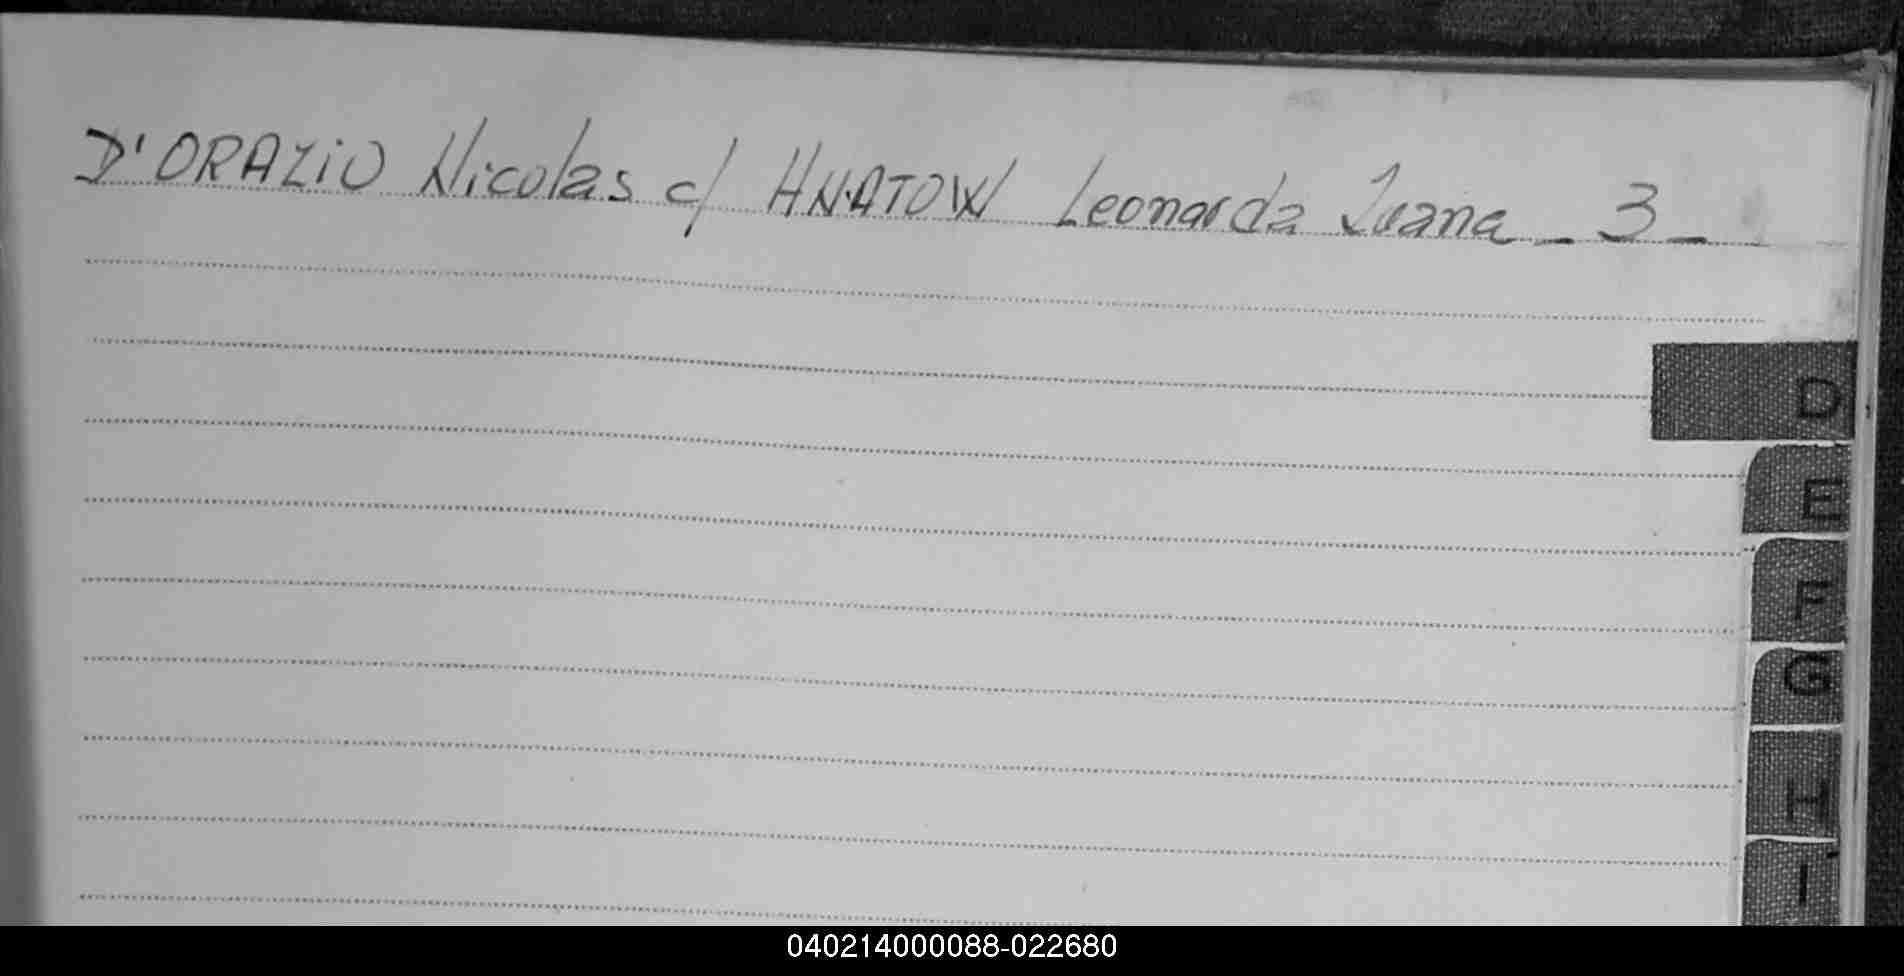 D'ORAZIO Nicolas c/ HNATOW Leonarda Juana _ 3 _
D
E
F
G
H
I
040214000088-022680